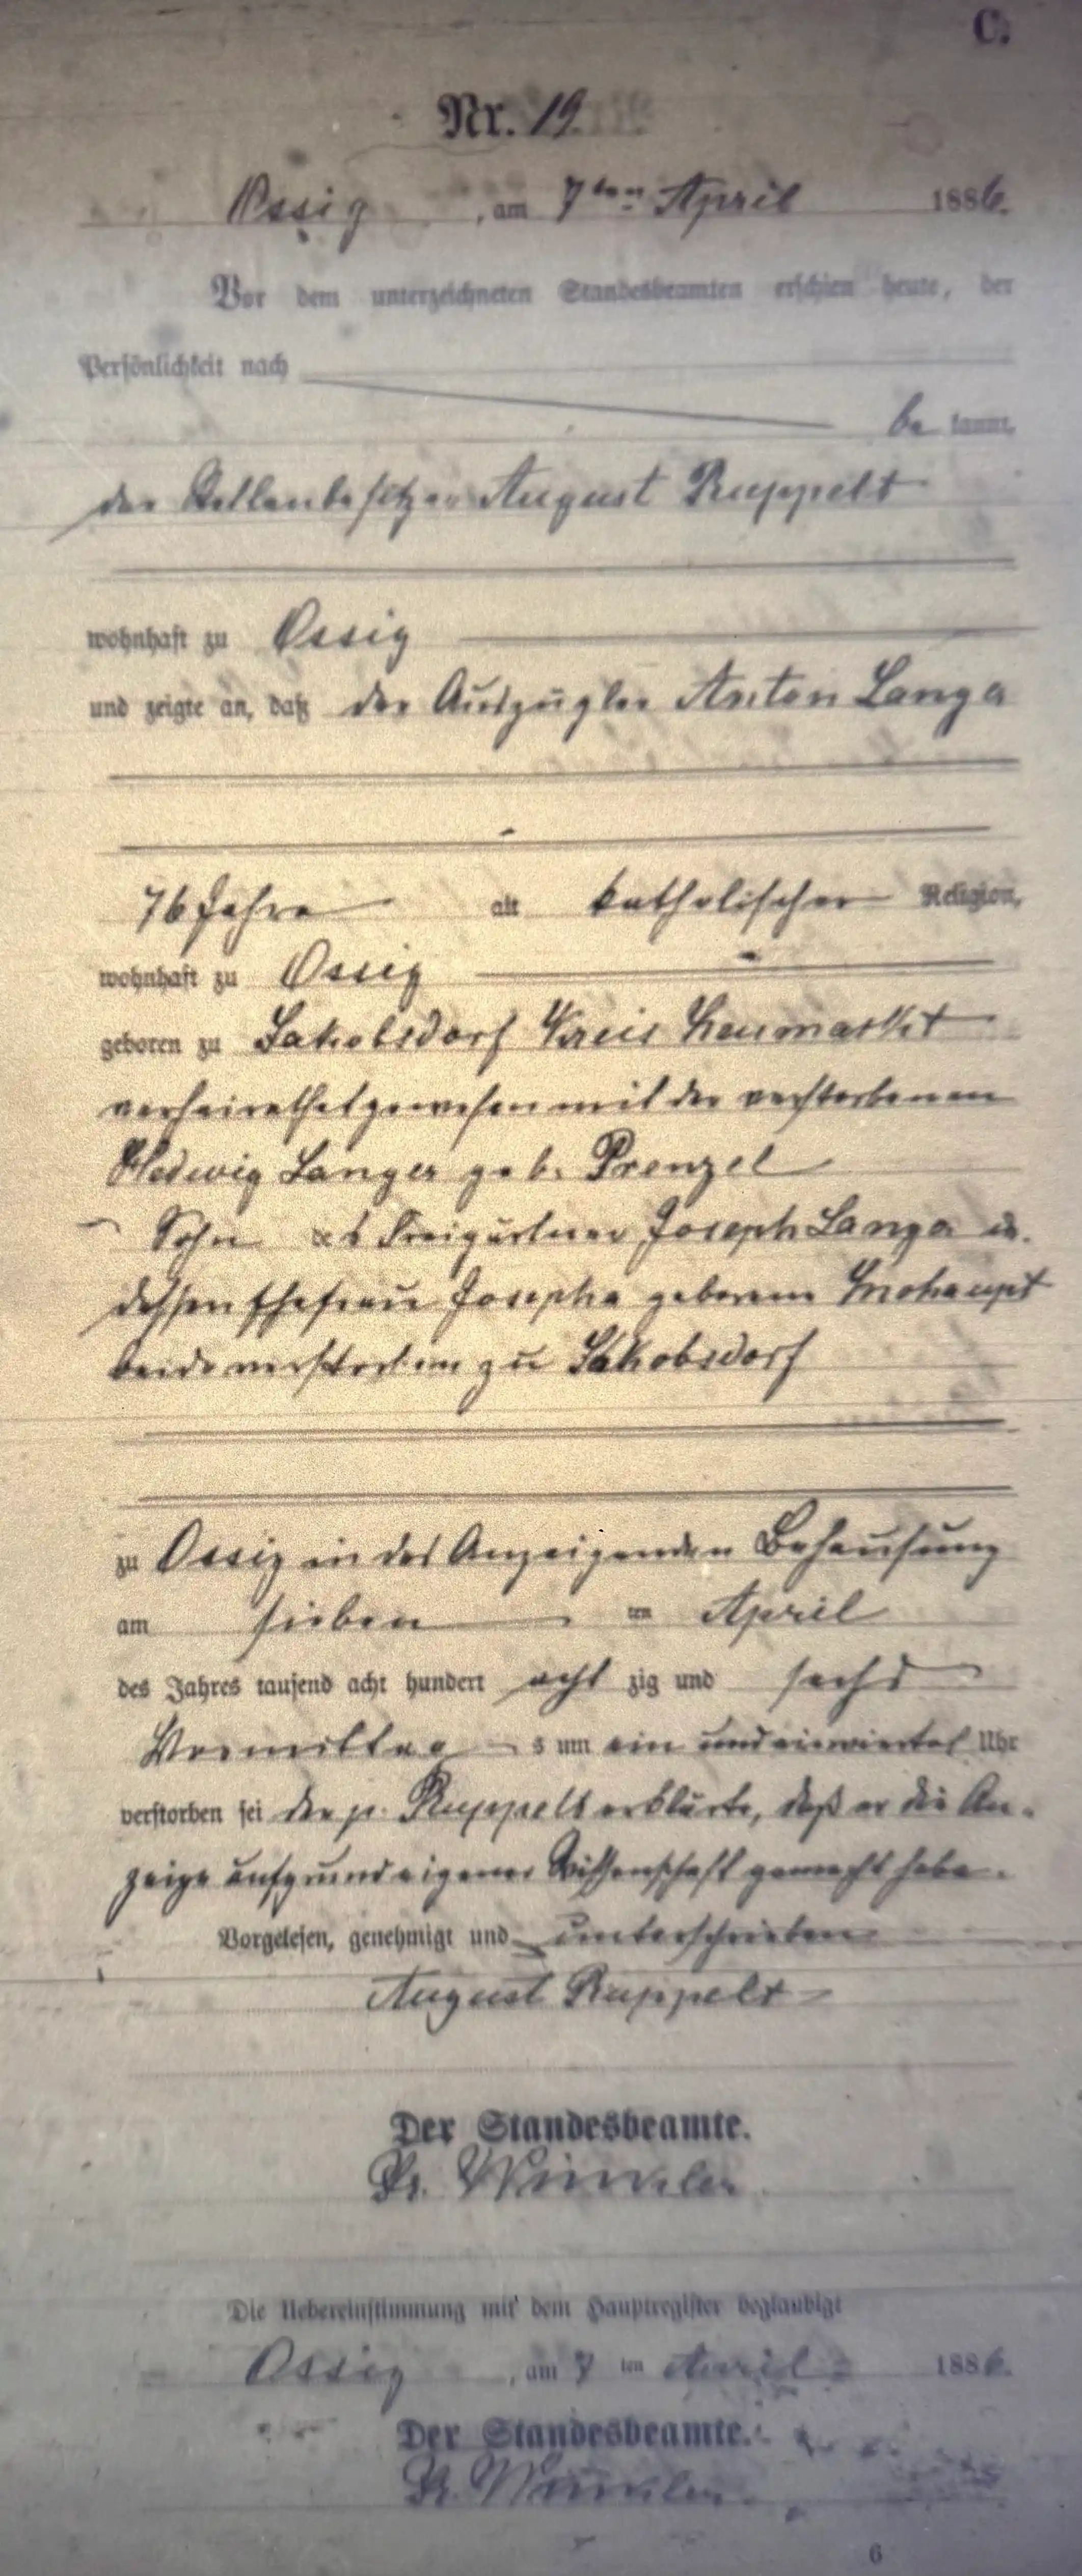 C.
Nr. 19.
Ossig, am 7ten April 1886.
Vor dem unterzeichneten Standesbeamten erschien heute, der
Persönlichkeit nach
bekannt,
der Stellenbesitzer August Ruppelt
wohnhaft zu Ossig
und zeigte an, daß der Auszügler Anton Langer
76 Jahre alt katholischer Religion,
wohnhaft zu Ossig
geboren zu Jakobsdorf Kreis Neumarkt
verheirathet gewesen mit der verstorbenen
Hedwig Langer geb. Prenzel
Sohn des Freigärtner Joseph Langer u.
dessen Ehefrau Josepha geborene
beide verstorben zu Jakobsdorf
zu Ossig in des Anzeigenden Behausung
am sieben ten April
des Jahres tausend acht hundert acht zig und sechs
Vormittag s um ein und einviertel Uhr
verstorben sei der p. Ruppelt erklärte, daß er die An-
zeige aufgrund eigener Wissenschaft gemacht habe.
Vorgelesen, genehmigt und unterschrieben
August Ruppelt
Der Standesbeamte.
Die Uebereinstimmung mit dem Hauptregister beglaubigt
Ossig, am 7 ten April 1886.
Der Standesbeamte.
6